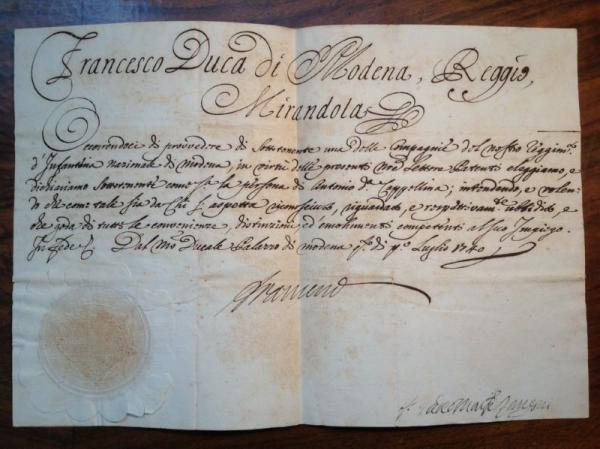 Francesco Duca di Modena, Reggio,
Mirandola &c
Occorrendoci di provvedere di Sottotenente una delle Compagnie del nostro Reggim.to
d'Infanteria Nazionale di Modena, in virtù delle presenti nre Lettere Patenti eleggiamo, e
dichiariamo Sottotenente come s.a la persona di Antonio; intendendo, e volen,
do che come tale sia da Chi s'aspetta riconosciuto, riguardato, e respettivam.te ubbidito, e
che goda di tutte le convenienze, distinzioni ed emolumenti competenti al suo Impiego.
In fede &c. Dal nro Ducale Palazzo di Modena q.o di p.o Luglio 1740
Francesco